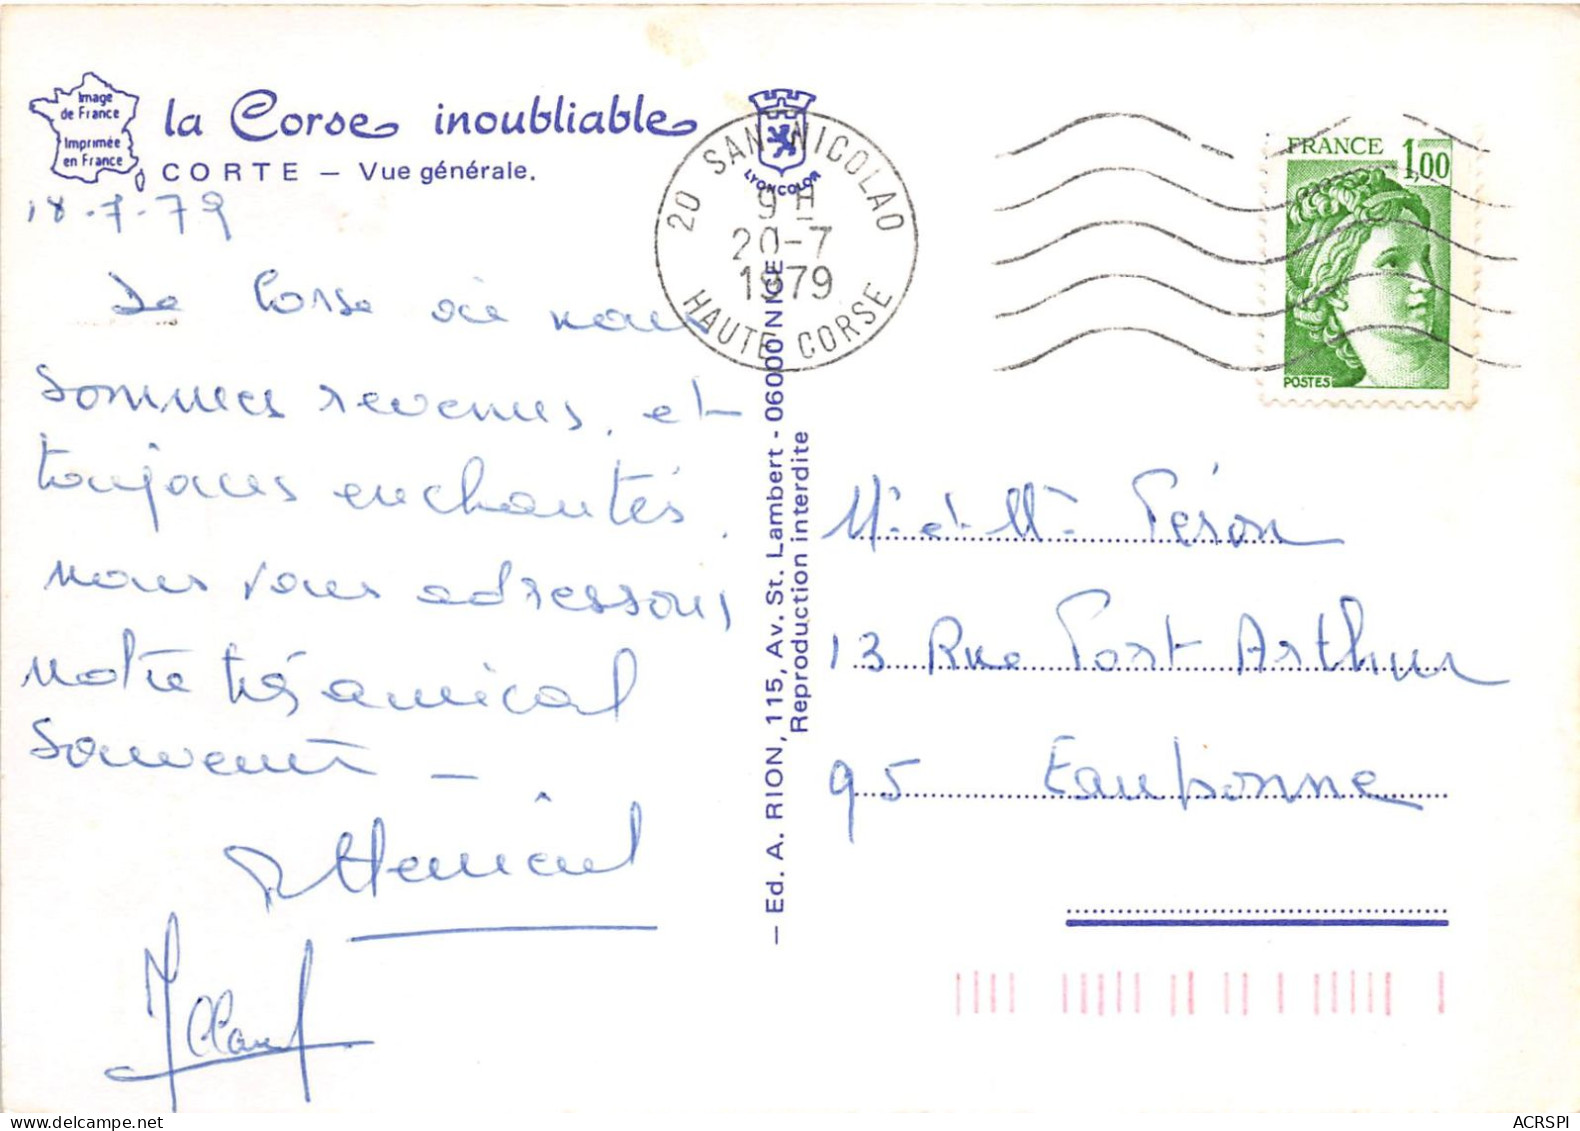 Image
de France
Imprimée
en France
la Corse inoubliable
CORTE – Vue générale.
18-7-79
De Corse où nous
sommes revenus, et
toujours enchantés,
nous vous adressons
notre très amical
souvenir –
LYONCOLOR
20 SAN NICOLAO
9 H
20-7
1979
HAUTE CORSE
FRANCE 1,00
POSTES
– Ed. A. RION, 115, Av. St. Lambert - 06000 NICE
Reproduction interdite
Mr et Mme Péron
13 Rue Port Arthur
95 Eaubonne
ACRSPI